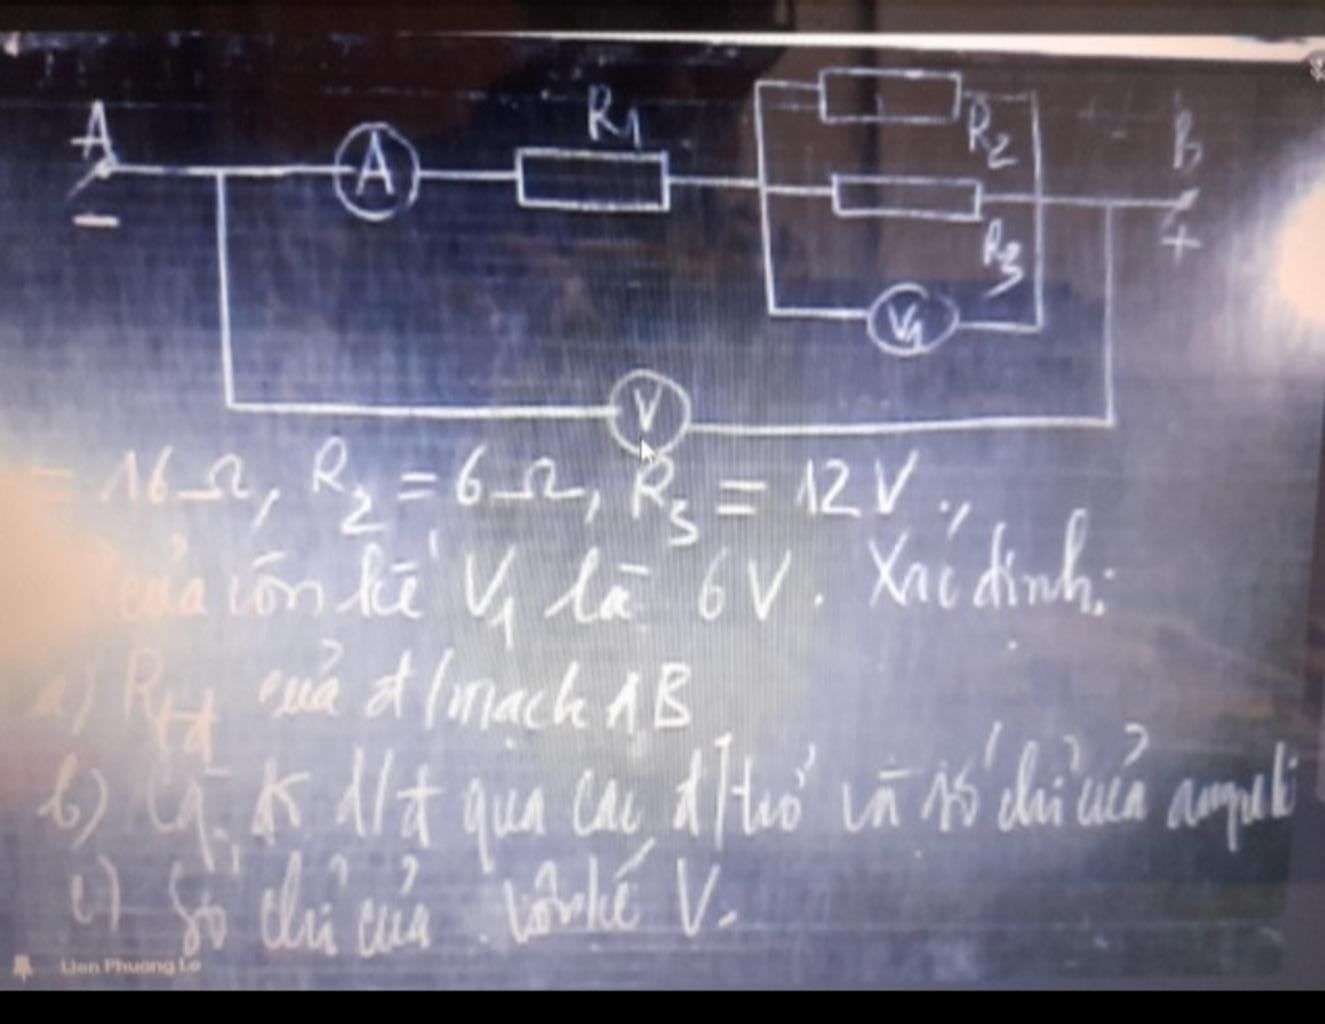 R1
A
A
R2
B
R3
+
V1
V
−
= 16Ω, R2 = 6Ω, R3 = 12V.
của vôn kế V1 là 6V. Xác định:
a) Rtđ của đ/mạch AB
b) đ/đ qua các đ/trở và số chỉ của
c) Số chỉ của vôn kế V.
Lien Phuong Le